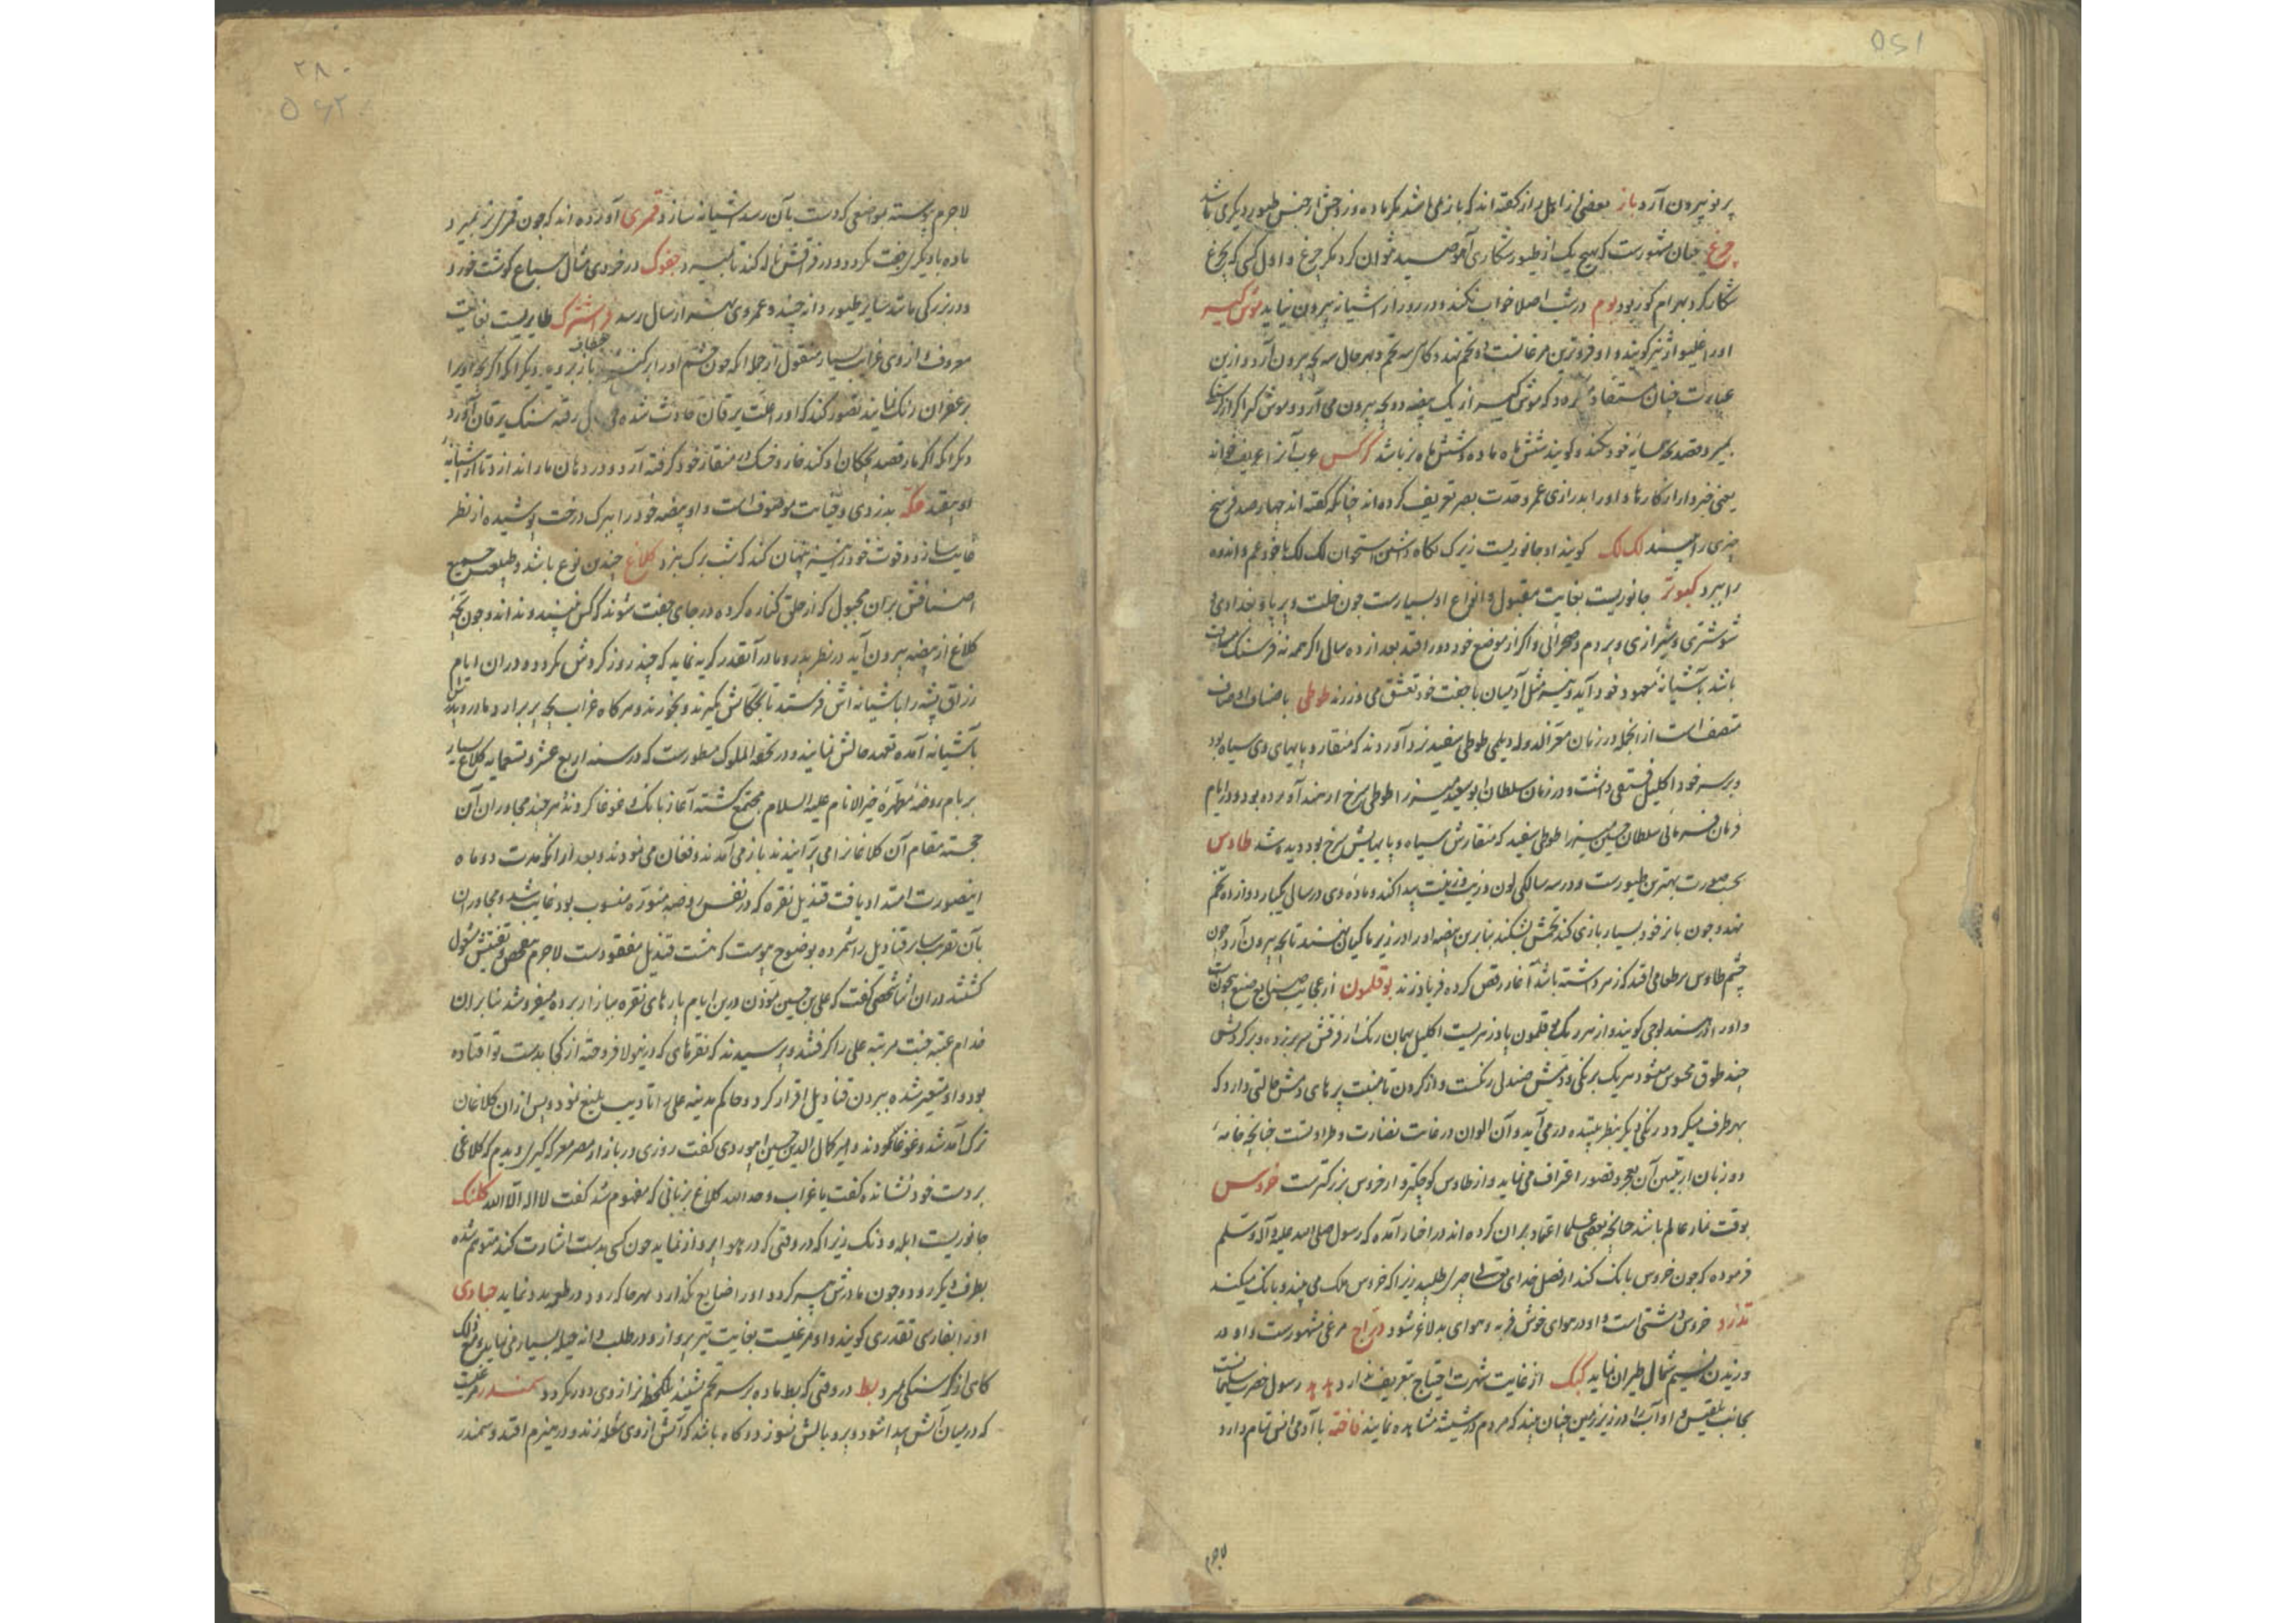 ۵۶۱
پر نو بیرون آرد باز بعضی از اهل راز گفته اند که باز می باشد مگر ماده و زوجش از جنس طیور دیگری باشد
چرغ چنان مشهورست که هیچ یک از طیور شکاری آهو صید نتوان کرد مگر چرغ و اول کسی که بچرغ
شکار کرد بهرام کور بود بوم در شب اصلا خواب نکند و در روز از آشیانه بیرون نیاید موش گیر
او را غلیواژ نیز گویند و او فروترین مرغانست دو تخم نهد و گاه سه تخم و بهر حال سه بچه بیرون آرد و ازین
عبارت چنان مستفاد گردد که موش گیر از یک بیضه دو بچه بیرون می آرد و موش گیر اگر از گرسنگی
بمیرد قصد بچه همسایه خود نکند و گویند شش ماه ماده و شش ماه نر باشد کرکس عرب آنرا عریف خواند
یعنی خبردار از کارها و او را بدرازی عمر و حدت بصر تعریف کرده اند چنانکه گفته اند چهارصد فرسخ
چیزی را بیند لک لک گویند او جانوریست زیرک نگاه داشتن استخوان لک لک با خود غم و اندوه
را ببرد کبوتر جانوریست بغایت مقبول و انواع او بسیارست چون خلت و پرپا و بغدادی و
شوشتری و شیرازی و پردم و صحرائی و اگر از موضع خود دور افتد بعد از ده سال اگر همه نه فرسنگ مسافت
باشد بآشیانه معهود خود آید و همیشه مثل آدمیان با جفت خود تعشق می ورزند طوطی باصناف اوصاف
متصف است از انجمله در زمان معزالدوله دیلمی طوطی سفید نزد آوردند که منقار و پایهای وی سیاه بود
و بر سر خود اکلیل فستقی داشت و در زمان سلطان ابو سعید میرزا طوطی سرخ از هند آورده بودند و در ایام
فرمان فرمائی سلطان حسین میرزا طوطی سفید که منقارش سیاه و پایهایش سرخ بود دیده شد طاوس
بحسب صورت بهترین طیورست و در سه سالگی لون و زیب و زینت پیدا کند و ماده وی در سالی یکبار دوازده تخم
نهد و چون با نر خود بسیار بازی کند تخمش بشکند بنابرین بیضه او را در زیر ماکیان نهند تا بچه بیرون آرد و چون
چشم طاوس بر طعامی افتد که زهر داشته باشد آغاز رقص کرده فریاد زند بوقلمون از عجایب صنایع صنع بیچونست
و او را در هند لوجی گویند و از هر رنگ بوقلمون با زهریست اکلیل بهمان رنگ از فرقش سر بر زده و بر گردنش
چند طوق محسوس میشود هر یک برنگی و دمش صندلی رنگست و از گردن تا منبت پرهای دمش حالتی دارد که
بهر طرف میگردد رنگی دیگر بنظر بیننده درمی آید و آن الوان در غایت نضارت و طراوتست چنانچه خامه
دو زبان از تبیین آن بعجز و قصور اعتراف می نماید و از طاوس کوچکتر و از خروس بزرگترست خروس
بوقت نماز عالم باشد چنانچه بعضی علما اعتماد بران کرده اند در اخبار آمده که رسول صلی الله علیه و آله و سلم
فرموده که چون خروس بانک کند از فضل خدای تعالی چیزی طلبید زیرا که خروس ملک می بیند و بانک میکند
تذرو خروس دشتی است و او در هوای خوش فربه و هوای بد لاغر شود دراج مرغی مشهورست و او در
وزیدن نسیم شمال طیران نماید کبک از غایت شهرت احتیاج بتعریف ندارد هدهد رسول حضرت سلیمانست
بجانب بلقیس و او آب را در زیر زمین چنان بیند که مردم در شیشه مشاهده نمایند فاخته با آدمی انس تمام دارد
لاجرم
۲۸۰
۵۶۲
لاجرم پیوسته بموضعی که دست بآن رسد آشیانه سازد قمری آورده اند که چون قمری نر بمیرد
ماده با دیگری جفت نگردد و در فراقش ناله کند تا بمیرد چغوک در خردی مثال سباع گوشت خورد
و در بزرگی مانند سایر طیور دانه چیند و عمر وی بیشتر از سال رسد فراشترک طایریست بغایت
معروف و از وی غرایب بسیار منقول از جمله آنکه چون چشم او را برکنند باز بروید دیگر آنکه اگر بچه او را
خطاف
بزعفران رنگ نمایند تصور کند که او را علت یرقان حادث شده فی الحال رفته سنگ یرقان آورد
دیگر آنکه اگر مار قصد بچگان او کند خار و خسک در منقار خود گرفته آرد و در دهان مار اندازد تا از آشیانه
او بیفتد عکه بدزدی و خیانت موصوف است و او بیضه خود را ببرگ درخت پوشیده از نظر
غایب سازد و قوت خود را نیز پنهان کند که شب برک بزد کلاغ چندین نوع باشد و طبیعت جمیع
اصنافش بران مجبول که از خلق کناره کرده در جای جفت شوند که کس نبیند و نداند و چون بچه
کلاغ از بیضه بیرون آید در نظر پدر و مادر آنقدر کریه نماید که چند روز گردش نگردد و دران ایام
رزاق پشه را بآشیانه اش فرستد تا بچگانش گیرند و بخورند و هرگاه غراب بچه پر برآرد مادر و پدرش
بآشیانه آمده تعهد حالش نمایند و در تحفة الملوک مسطورست که در سنه اربع عشر و تسعمایه کلاغ بسیار
بر بام روضه مطهره خیر الانام علیه السلام مجتمع گشته آغاز بانک و غوغا کردند هر چند مجاوران آن
خجسته مقام آن کلاغانرا می پرانیدند باز می آمدند و فغان می نمودند و بعد از آنکه مدت دو ماه
اینصورت امتداد یافت قندیل نقره که در نفس روضه منوره منسوب بود غایب شد و مجاوران
بآن تقریب سایر قنادیل را شمرده بوضوح پیوست که هشت قندیل مفقودست لاجرم بتفحص و تفتیش مشغول
گشتند دران اثنا شخصی گفت که علی بن حسین مؤذن درین ایام پارهای نقره ببازار برده میفروشد بنا بران
خدام عتبه جنت مرتبه علی را گرفتند و پرسیدند که نقرهای که درینولا فروخته از کجا بدست تو افتاده
بود و او متغیر شده ببردن قنادیل اقرار کرد و حاکم مدینه علی را تادیب بلیغ نمود و پس ازان کلاغان
ترک آمد شد و غوغا نمودند و امیر کمال الدین حسین ابیوردی گفت روزی در بازار مصر معرکه گیری دیدم که کلاغی
بر دست خود نشانده گفت یا غراب وحد الله کلاغ بزبانی که مفهوم شد گفت لا اله الا الله کلنک
جانوریست ابله و دنک زیرا که در وقتی که در هوا پرواز نماید چون کسی بدست اشارت کند متوهم شده
بطرف دیگر رود و چون مادرش پیر گردد او را ضایع نگذارد بهر جا که رود در طی مدد نماید حباری
او را بفارسی تقدری گویند و او مرغیست بغایت تیز پرواز و در طلب دانه حیله بسیار می نماید و مع ذلک
گاهی از گرسنگی میرد بط در وقتی که بط ماده بر سر تخم نشیند یک لحظه نر از وی دور نگردد سمندر مرغیست
که در میان آتش پیدا شود و پر و بالش نسوزد و گاه باشد که آتش از وی شعله زند و در هیزم افتد و سمندر